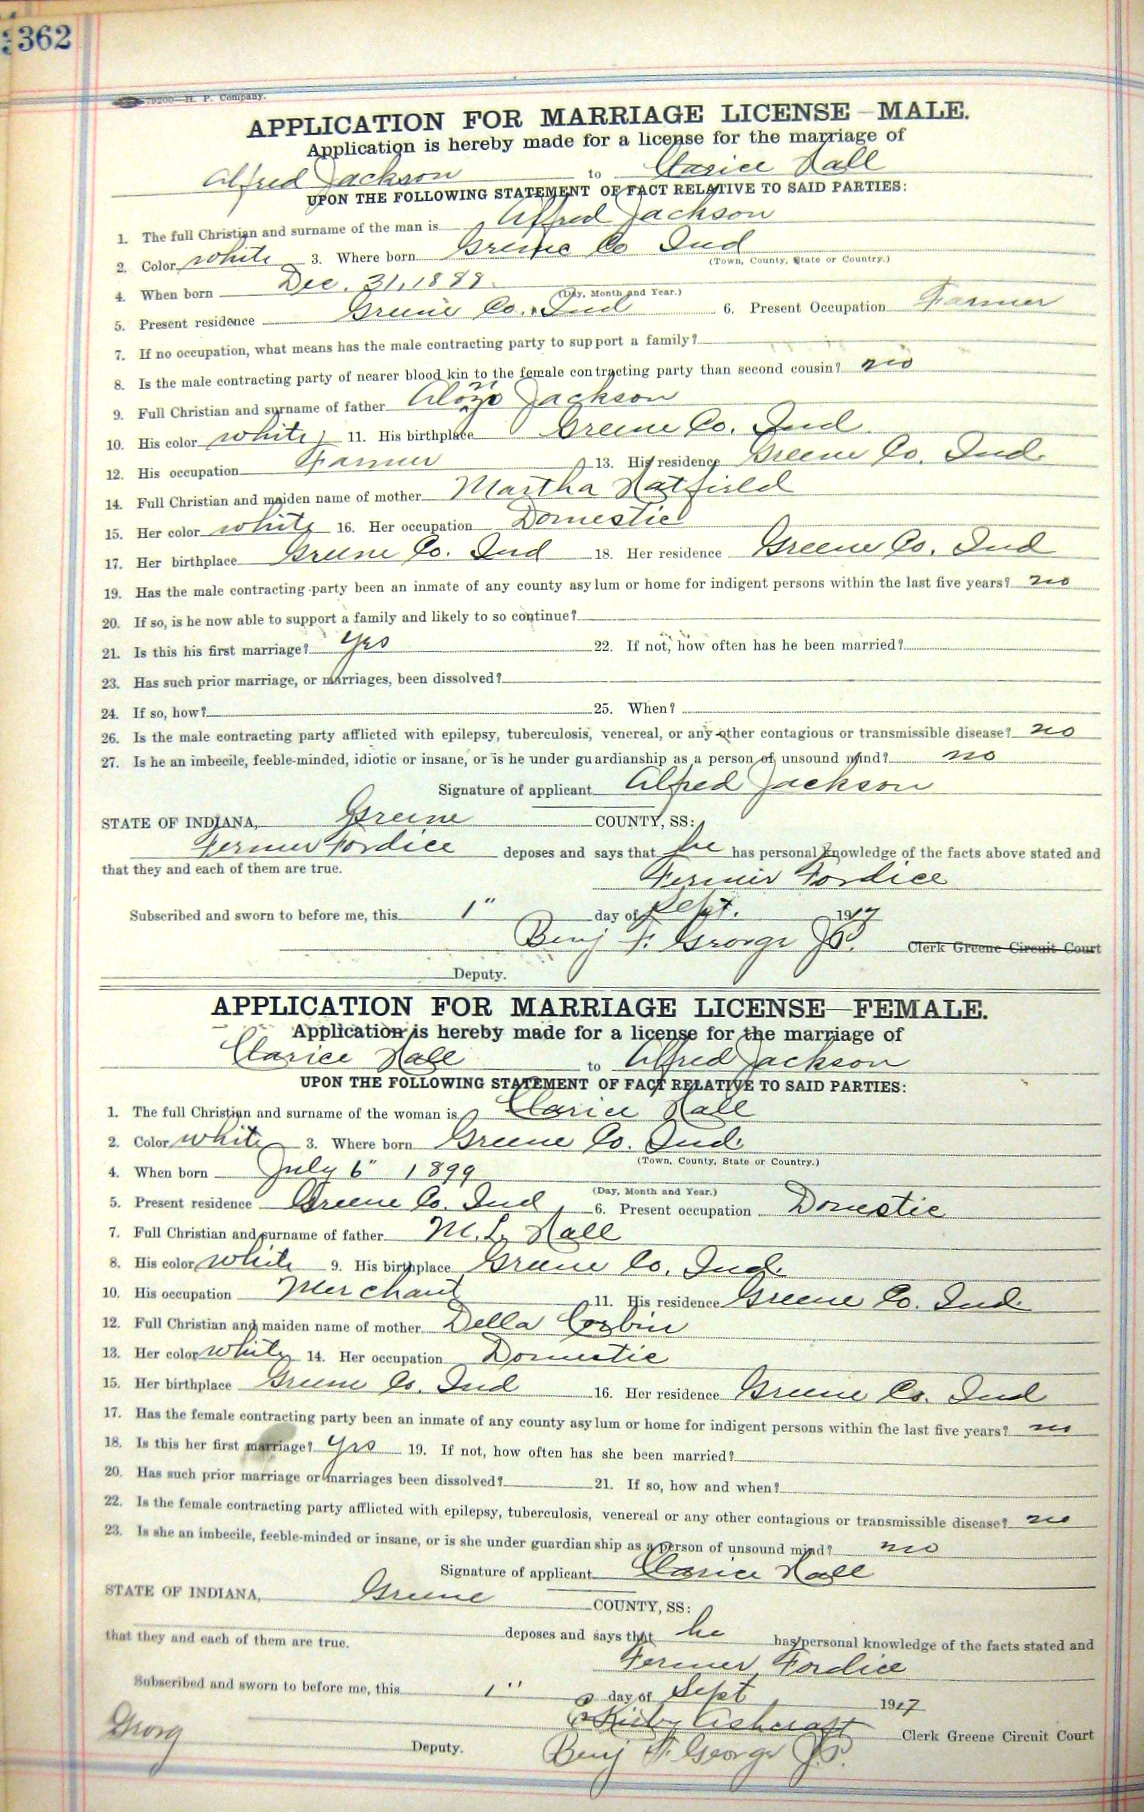 362
79200—H. P. Company.
APPLICATION FOR MARRIAGE LICENSE—MALE.
Application is hereby made for a license for the marriage of
Alfred Jackson to Clarice Hall
UPON THE FOLLOWING STATEMENT OF FACT RELATIVE TO SAID PARTIES:
1. The full Christian and surname of the man is Alfred Jackson
2. Color white 3. Where born Greene Co Ind
(Town, County, State or Country.)
4. When born Dec. 31, 1898.
(Day, Month and Year.)
5. Present residence Greene Co., Ind 6. Present Occupation Farmer
7. If no occupation, what means has the male contracting party to support a family?
8. Is the male contracting party of nearer blood kin to the female contracting party than second cousin? no
9. Full Christian and surname of father Alonzo Jackson
10. His color white 11. His birthplace Greene Co. Ind.
12. His occupation Farmer 13. His residence Greene Co. Ind.
14. Full Christian and maiden name of mother Martha Hatfield
15. Her color white 16. Her occupation Domestic
17. Her birthplace Greene Co. Ind 18. Her residence Greene Co. Ind
19. Has the male contracting party been an inmate of any county asylum or home for indigent persons within the last five years? no
20. If so, is he now able to support a family and likely to so continue?
21. Is this his first marriage? yes 22. If not, how often has he been married?
23. Has such prior marriage, or marriages, been dissolved?
24. If so, how? 25. When?
26. Is the male contracting party afflicted with epilepsy, tuberculosis, venereal, or any other contagious or transmissible disease? no
27. Is he an imbecile, feeble-minded, idiotic or insane, or is he under guardianship as a person of unsound mind? no
Signature of applicant Alfred Jackson
STATE OF INDIANA, Greene COUNTY, SS:
Fermer Fordice deposes and says that he has personal knowledge of the facts above stated and
that they and each of them are true.
Fermer Fordice
Subscribed and sworn to before me, this 1" day of Sept. 1917
Benj F. George J.P. Clerk Greene Circuit Court
Deputy.
APPLICATION FOR MARRIAGE LICENSE—FEMALE.
Application is hereby made for a license for the marriage of
Clarice Hall to Alfred Jackson
UPON THE FOLLOWING STATEMENT OF FACT RELATIVE TO SAID PARTIES:
1. The full Christian and surname of the woman is Clarice Hall
2. Color white 3. Where born Greene Co. Ind.
(Town, County, State or Country.)
4. When born July 6" 1899
(Day, Month and Year.)
5. Present residence Greene Co. Ind 6. Present occupation Domestic
7. Full Christian and surname of father M. L. Hall
8. His color white 9. His birthplace Greene Co. Ind.
10. His occupation Merchant 11. His residence Greene Co. Ind.
12. Full Christian and maiden name of mother Della Corbin
13. Her color white 14. Her occupation Domestic
15. Her birthplace Greene Co. Ind 16. Her residence Greene Co. Ind
17. Has the female contracting party been an inmate of any county asylum or home for indigent persons within the last five years? no
18. Is this her first marriage? yes 19. If not, how often has she been married?
20. Has such prior marriage or marriages been dissolved? 21. If so, how and when?
22. Is the female contracting party afflicted with epilepsy, tuberculosis, venereal or any other contagious or transmissible disease? no
23. Is she an imbecile, feeble-minded or insane, or is she under guardianship as a person of unsound mind? no
Signature of applicant Clarice Hall
STATE OF INDIANA, Greene COUNTY, SS:
deposes and says that he has personal knowledge of the facts stated and
that they and each of them are true.
Fermer Fordice
Subscribed and sworn to before me, this 1" day of Sept 1917
Kirby Ashcraft Clerk Greene Circuit Court
Georg Deputy. Benj F. George J.P.